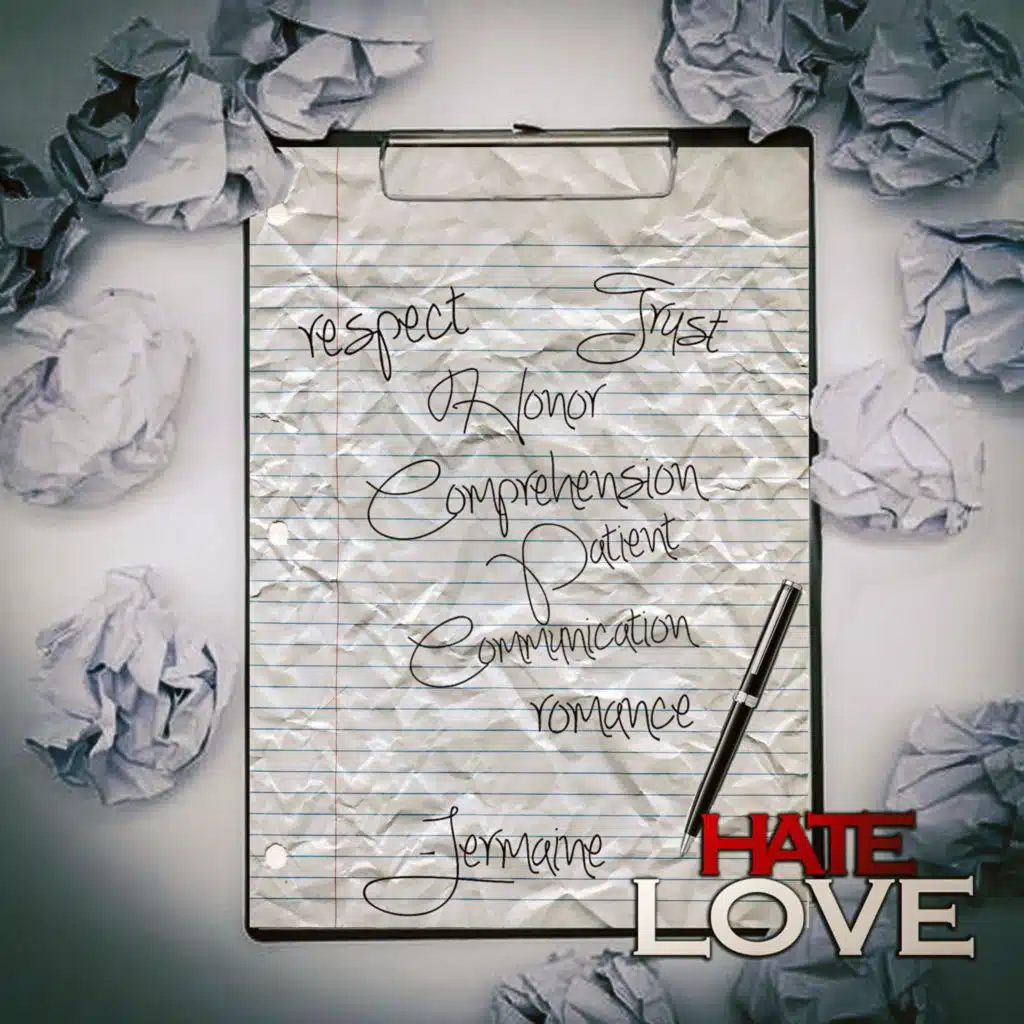 respect Trust
Honor
Comprehension
Patient
Communication
romance
-Jermaine
HATE
LOVE